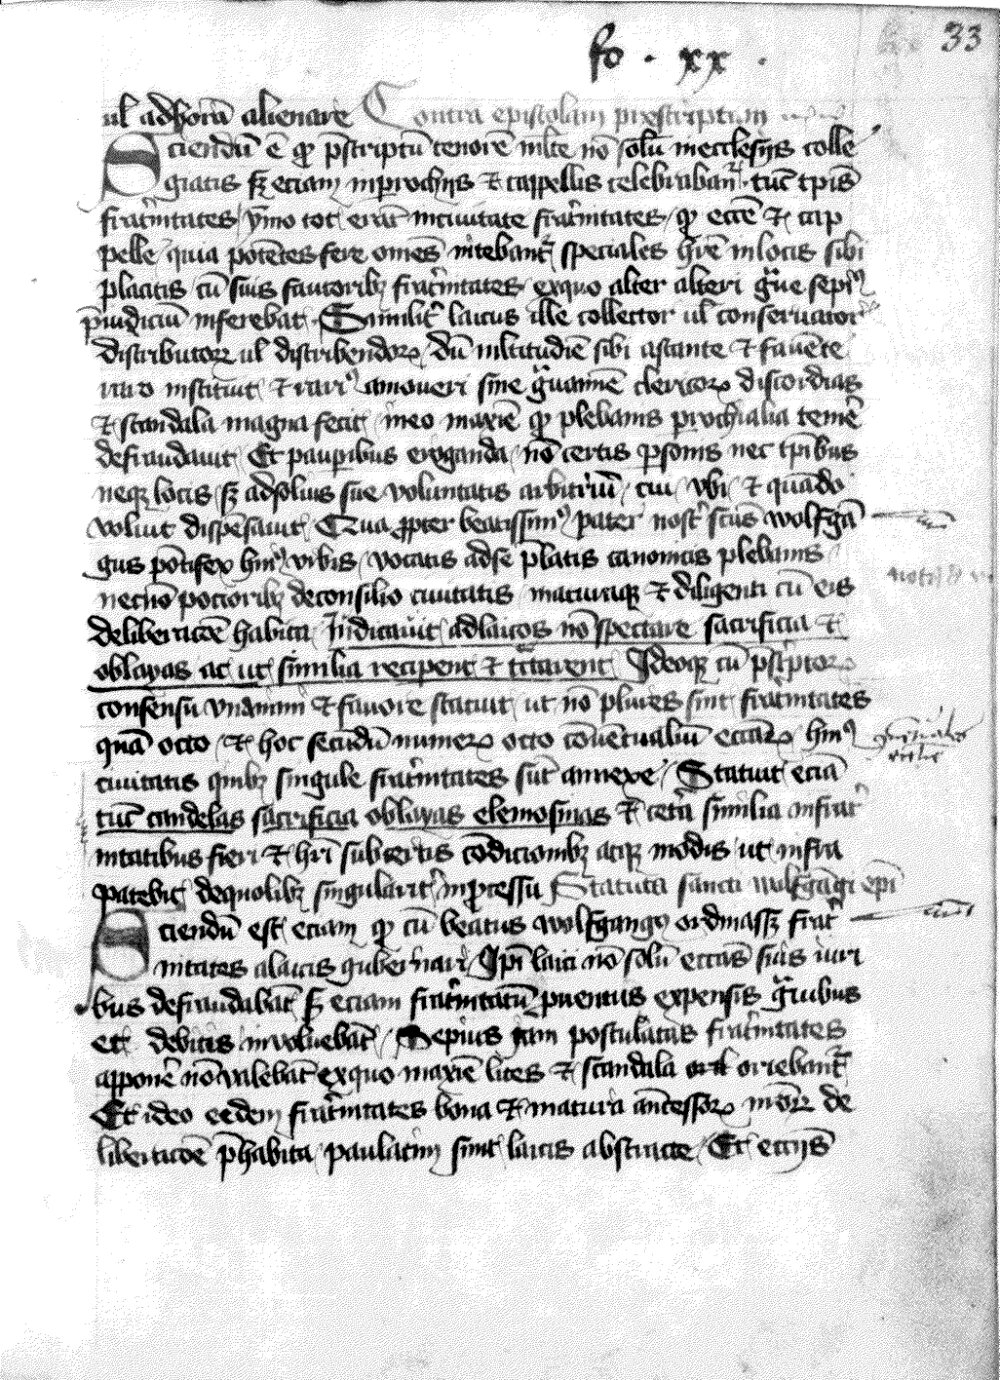 fo . xx .
33
ul adhorā alienare Contra epistolam prescriptam
Sciendū ē qꝫ pscriptū tenorē mlte nō solū inecclesijs colle
giatis sꝫ eciam inprochijs ⁊ cappellis celebrabanť tūc tpis
frat'nitates ymo tot erāt inciuitate frat'nitates qꝫ ecce ⁊ cap
pelle quia potētes fere omēs nitebanť speciales hrē inlocis sibi
placitis cū suis fautoribꝫ frat'nitates exquo alter alteri gͣue sepiꝰ
p̄iudiciū inferebat Similit' laicus ille collector ul conseruator
distributorꝝ ul distribendorꝝ dū mltitudiē sibi astante ⁊ fauēte
raro instituit ⁊ rariꝰ amoueri sine gͣuamīe clericorꝝ discordias
⁊ scandala magna fecit ineo maxīe qꝫ plebanis prochialia temē
defraudauit Et paupibus eroganda nō certis psonis nec tpibus
neqꝫ locis sꝫ adsolius sue voluntatis arbitriū cui vbi ⁊ quādo
voluit dispēsauit Qua ꝓpter beatissimꝰ pater nost' scūs wolfgā
gus pōtifex hmꝰ vrbis vocatis adse p̄latis canonicis plebanis
necnō pocioribꝫ deconsilio ciuitatis maturaqꝫ ⁊ diligenti cū eis
deliberacōe habita Iudicauit adlaicos nō spectare sacrificia ⁊
oblayas ac ut similia recipent ⁊ tͣctarent Ideoqꝫ cū pscptorꝝ
consensu vnanimi ⁊ fauore statuit ut nō plures sint frat'nitates
quā octo ⁊ hoc secūdū numerꝝ octo cōuētualiū eccarꝝ hmꝰ
ciuitatis qinbꝫ singule frat'nitates sūt annexe Statuit eciā
tūc candelas sacrificia oblayas elemosinas ⁊ cet'a similia infrat'
nitatibus fieri ⁊ hri subcertis cōdicionibꝫ atqꝫ modis ut infra
patebit dequolibꝫ singularit' inpcessu Statuta sancti wolfgāgi epi
Sciendū est eciam qꝫ cū beatus wolfgangꝰ ordinassꝫ frat'
nitates alaicis gubernari Ipi laici nō solū eccas suis iuri
bus defraudabāt sꝫ eciam frat'nitatū puentus expensis gͣuibus
et debitis inuoluebāt Sepius iam postulatas frat'nitates
apponē nō valebāt exquo maxīe lites ⁊ scandala oriebanť
Et ideo eedem frat'nitates bona ⁊ matura ancessorꝝ mōrꝝ de
liberacōe p̄habita paulatim sunt laicis abstracte Et eccijs